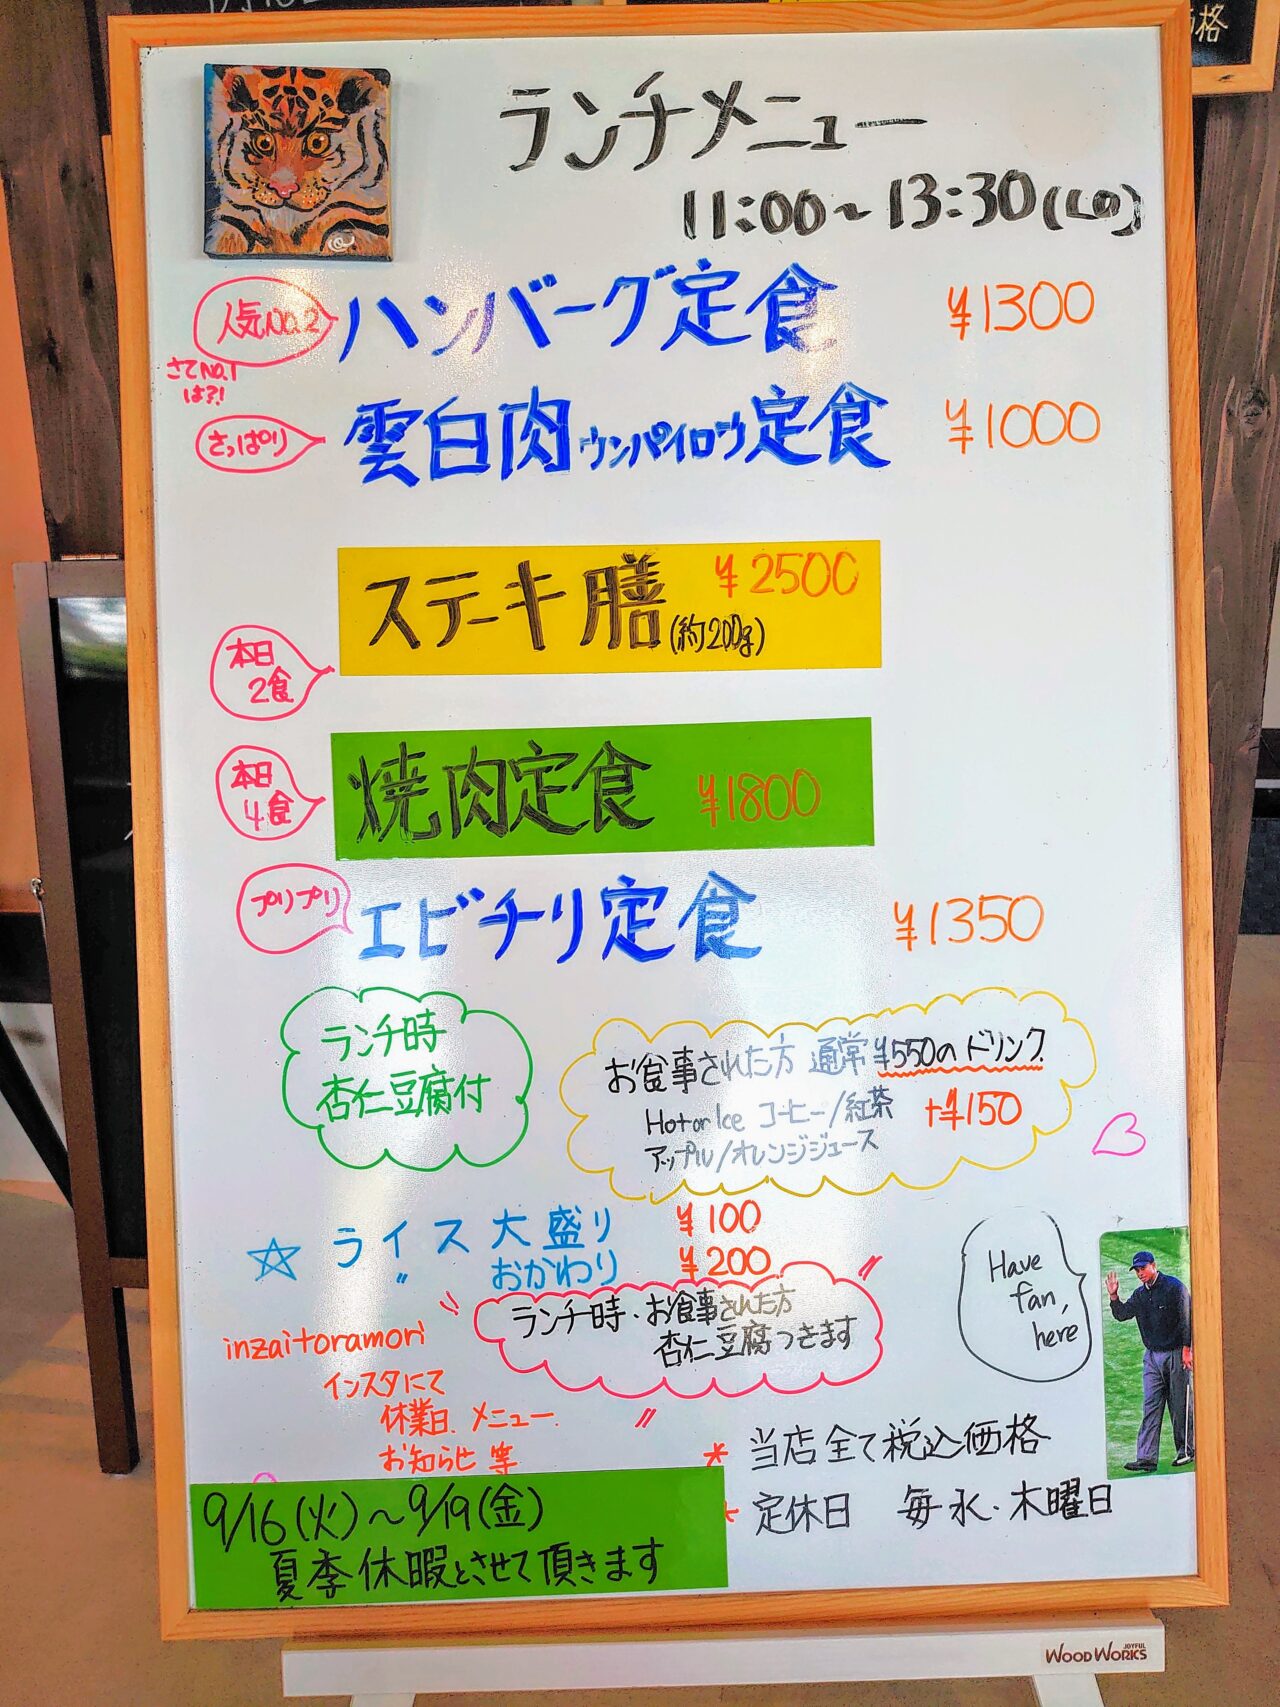 ランチメニュー
11:00~13:30(LO)
人気No.2
ハンバーグ定食 ¥1300
さてNo.1
は?!
さっぱり
雲白肉ウンパイロウ定食 ¥1000
ステーキ膳 ¥2500
(約200g)
本日
2食
本日
4食
焼肉定食 ¥1800
プリプリ
エビチリ定食 ¥1350
ランチ時
杏仁豆腐付
お食事された方 通常¥550のドリンク
Hot or Ice コーヒー/紅茶 +¥150
アップル/オレンジジュース
☆ ライス 大盛り ¥100
〃 おかわり ¥200
ランチ時・お食事された方
杏仁豆腐つきます
Have
fan,
here
inzaitoramori
インスタにて
休業日.メニュー.
お知らせ 等
* 当店全て税込価格
* 定休日 毎水・木曜日
9/16(火)~9/19(金)
夏季休暇とさせて頂きます
JOYFUL
WOOD WORKS
格